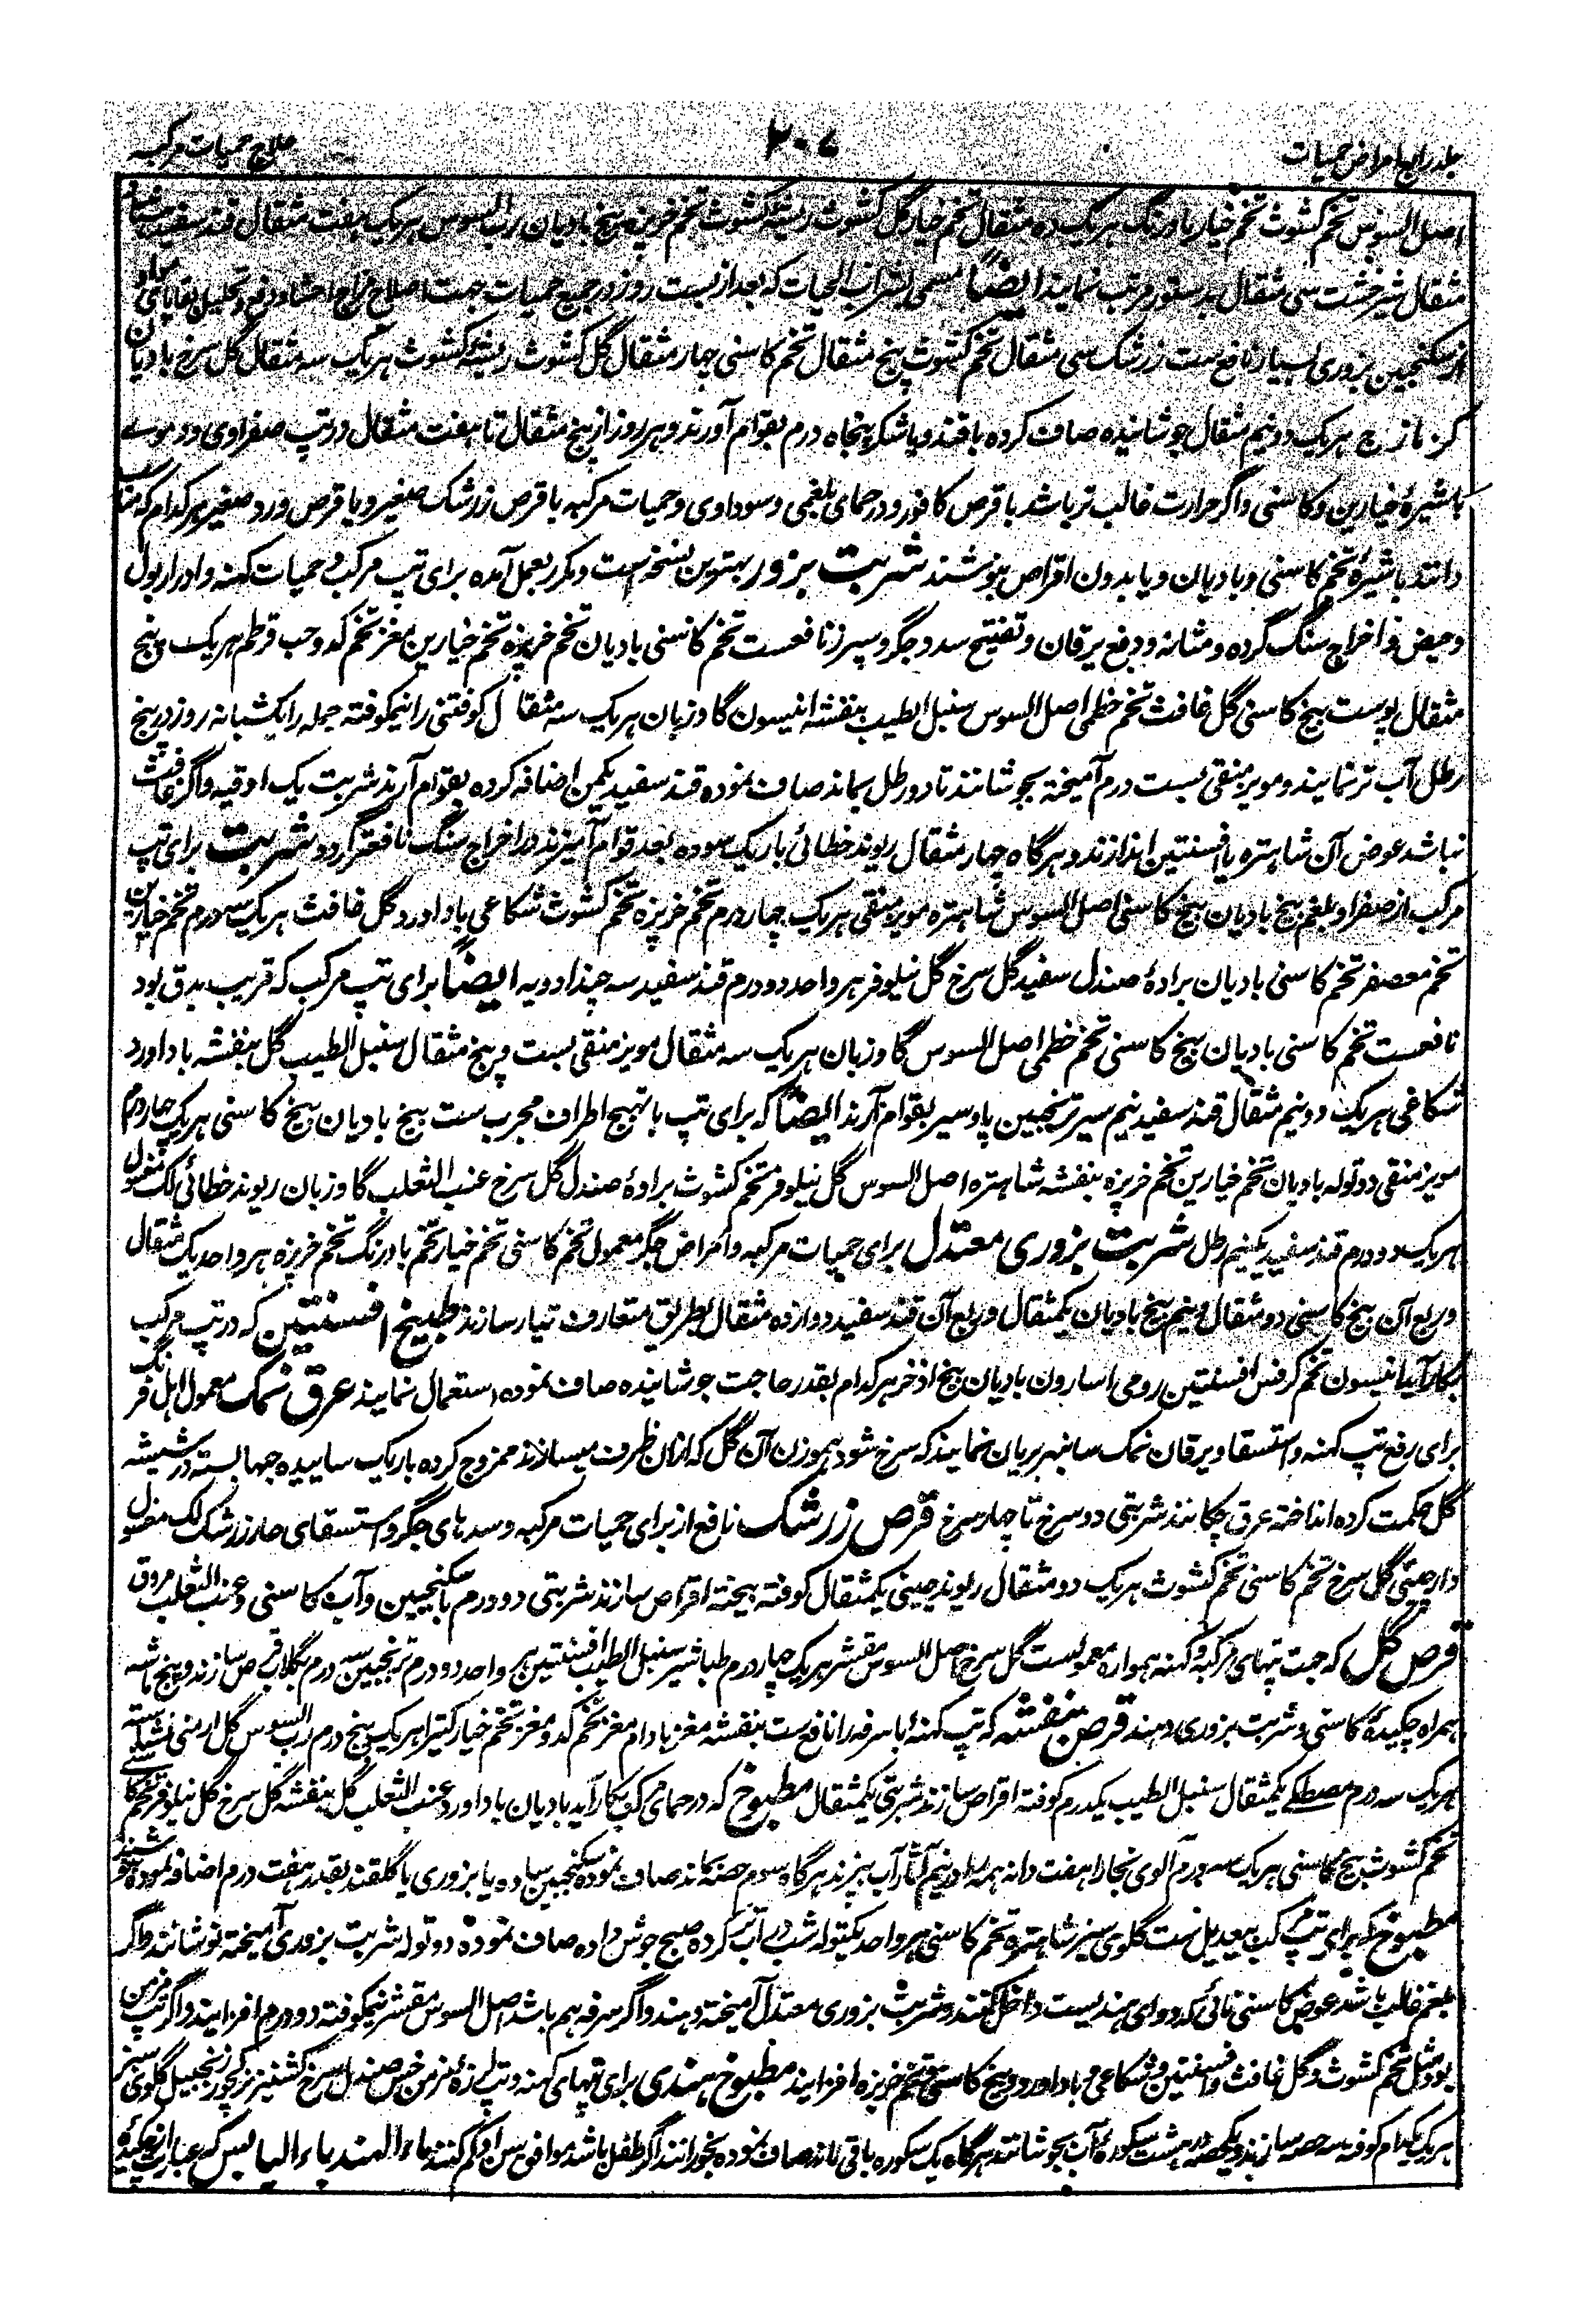 جلد رابع امراض حمیات
۲۰۷
علاج حمیات مرکبه
اصل السوس تخم کشوث تخم خیار بادرنگ هریک ده مثقال تخم خیار گل کشوث ریشهٔ کشوث تخم خرپزه بیخ بادیان رب السوس هریک هفت مثقال قند سفید
مثقال شیرخشت سی مثقال بدستور مرتب نمایند ایضاً مسمی بشراب الحیات که بعد از بست روز در جمیع حمیات جهت اصلاح مزاج احشا و رفع و تحلیل بقایای
از سکنجبین بزوری بسیار نافع ست زرشک سی مثقال تخم کشوث پنج مثقال تخم کاسنی چهار مثقال گل کشوث ریشهٔ کشوث هریک سه مثقال گل سرخ بادیان
کزمازج هریک دو نیم مثقال جوشانیده صاف کرده با قند و یا شکر پنجاه درم بقوام آورند و هر روز از پنج مثقال تا هفت مثقال در تپ صفراوی و دموی
با شیرهٔ خیارین و کاسنی و اگر حرارت غالب تر باشد با قرص کافور و در حمای بلغمی و سوداوی و حمیات مرکبه با قرص زرشک صغیر و یا قرص ورد صغیر هر کدام که مناسب
دانند با شیرهٔ تخم کاسنی و بادیان و یا بدون اقراص بنوشند شربت بزور بهترین نسخه است و مکرر بعمل آمده برای تپ مرکب و حمیات کهنه و ادرار بول
و حیض و اخراج سنگ گرده و مثانه و دفع یرقان و تفتیح سدد جگر و سپرز نافعست تخم کاسنی بادیان تخم خرپزه تخم خیارین مغز تخم کدو حب قرطم هریک پنج
مثقال پوست بیخ کاسنی گل غافث تخم خطمی اصل السوس سنبل الطیب بنفشه انیسون گاوزبان هریک سه مثقال کوفتنی را نیمکوفته جمله را یکشبانه روز در پنج
رطل آب تر نمایند و مویز منقی بست درم آمیخته بجوشانند تا دو رطل بماند صاف نموده قند سفید یکمن اضافه کرده بقوام آرند شربت یک اوقیه و اگر غافث
نباشد عوض آن شاهتره یا افسنتین اندازند و هرگاه چهار مثقال ریوند خطائی باریک سوده بعد قوام آمیزند در اخراج سنگ نافعتر گردد شربت برای تپ
مرکب از صفرا و بلغم بیخ بادیان بیخ کاسنی اصل السوس شاهتره مویز منقی هریک چهار درم تخم خرپزه تخم کشوث شکاعی باداورد گل غافث هریک سه درم تخم خیارین
تخم معصفر تخم کاسنی بادیان برادهٔ صندل سفید گل سرخ گل نیلوفر هر واحد دو درم قند سفید سه چند ادویه ایضاً برای تپ مرکب که قریب بدق بود
نافعست تخم کاسنی بادیان بیخ کاسنی تخم خطمی اصل السوس گاوزبان هریک سه مثقال مویز منقی بست و پنج مثقال سنبل الطیب گل بنفشه باداورد
شکاعی هریک دو نیم مثقال قند سفید نیم سیر ترنجبین پاو سیر بقوام آرند ایضاً که برای تپ با تهبج اطراف مجرب ست بیخ بادیان بیخ کاسنی هریک چهار درم
مویز منقی دو توله بادیان تخم خیارین تخم خرپزه بنفشه شاهتره اصل السوس گل نیلوفر تخم کشوث برادهٔ صندل گل سرخ عنب الثعلب گاوزبان ریوند خطائی لک مغسول
هریک دو درم قند سفید یکنیم رطل شربت بزوری معتدل برای حمیات مرکبه و امراض جگر معمول تخم کاسنی تخم خیار تخم بادرنگ تخم خرپزه هر واحد یک مثقال
و ربع آن بیخ کاسنی دو مثقال و نیم بیخ بادیان یکمثقال و ربع آن قند سفید دوازده مثقال بطریق متعارف تیار سازند طبیخ افسنتین که در تپ مرکب
بکار آید انیسون تخم کرفس افسنتین رومی اسارون بادیان بیخ اذخر هر کدام بقدر حاجت جوشانیده صاف نموده استعمال نمایند عرق نمک معمول اهل فرنگ
برای رفع تپ کهنه و استسقا و یرقان نمک سانبهر بریان نمایند که سرخ شود هموزن آن گل که ازان ظرف میسازند ممزوج کرده باریک ساییده حبها بسته در شیشه
گل حکمت کرده انداخته عرق چکانند شربتی دو سرخ تا چهار سرخ قرص زرشک نافع از برای حمیات مرکبه و سدهای جگر و استسقای حار زرشک لک مغسول
دارچینی گل سرخ تخم کاسنی تخم کشوث هریک دو مثقال ریوند چینی یکمثقال کوفته بیخته اقراص سازند شربتی دو درم با سکنجبین و آب کاسنی و عنب الثعلب مروق
قرص گل که جهت تپهای مرکبه و کهنه همواره معمولست گل سرخ اصل السوس مقشر هریک چار درم طباشیر سنبل الطیب افسنتین هر واحد دو درم ترنجبین سه درم بگلاب قرص سازند و پنج ماشه
همراه چکیدهٔ کاسنی و شربت بزوری دهند قرص بنفشه که تپ کهنه با سرفه را نافع ست بنفشه مغز بادام مغز تخم کدو مغز تخم خیار کتیرا هریک پنج درم رب السوس گل ارمنی نشاسته
هریک سه درم مصطکی یکمثقال سنبل الطیب یکدرم کوفته اقراص سازند شربتی یکمثقال مطبوخ که در حمای مرکب بکار آید بادیان باداورد عنب الثعلب گل بنفشه گل سرخ گل نیلوفر تخم کاسنی
تخم کشوث بیخ کاسنی هریک سه درم آلوی بخارا هفت دانه همه را در نیم آثار آب بپزند هرگاه سوم حصه بماند صاف نموده سکنجبین ساده یا بزوری یا گلقند بقدر هفت درم اضافه نموده بنوشند
مطبوخ که برای تپ مرکب بیعدیل ست گلوی سبز شاهتره تخم کاسنی هر واحد یکتوله شب در آب تر کرده صبح جوش داده صاف نموده دو توله شربت بزوری آمیخته نوشانند و اگر
بلغم غالب باشد عوض کاسنی نائی که دوای هندیست داخل کنند و شربت بزوری معتدل آمیخته دهند و اگر سرفه هم باشد اصل السوس مقشر نیمکوفته دو درم افزایند و اگر تپ مزمن
بود مثل تخم کشوث و گل غافث و افسنتین و شکاعی و باداورد و بیخ کاسنی و تخم خرپزه افزایند مطبوخ هندی برای تپهای کهنه و تپ لرزهٔ مزمن خس صندل سرخ کشنیز نرکچور زنجبیل گلوی سبز
هریک یکدام کوفته سه حصه سازند و یکحصه در هشت سکورهٔ آب بجوشانند هرگاه یک سکوره باقی ماند صاف نموده بخورانند اگر طفل باشد موافق سن او کم کنند ماء الهندباء الیابس که عبارت از چکیدهٔ